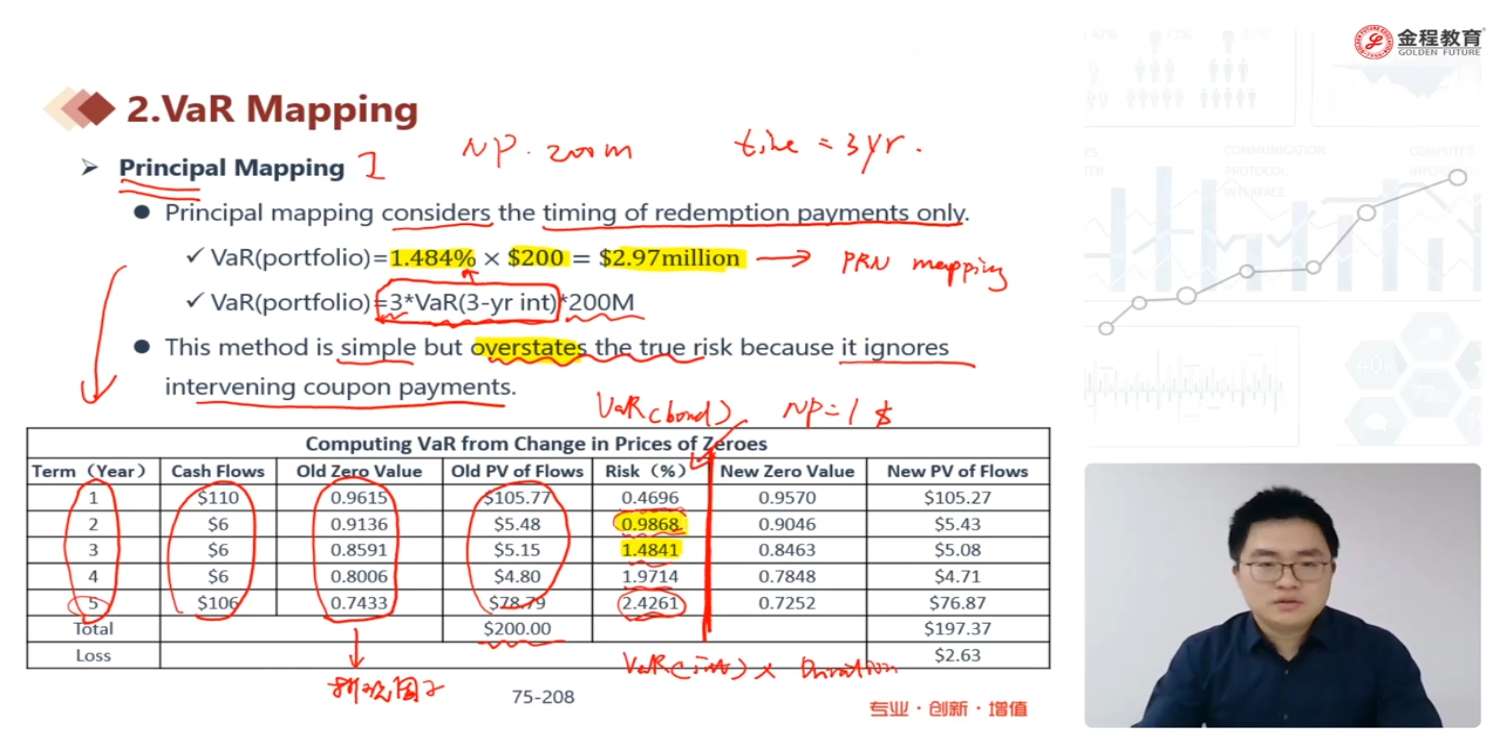 金程教育
GOLDEN FUTURE
2.VaR Mapping
NP. 200m
time = 3yr.
➢ Principal Mapping 1
● Principal mapping considers the timing of redemption payments only.
✓ VaR(portfolio)=1.484% × $200 = $2.97million
PRN mapping
✓ VaR(portfolio)=3*VaR(3-yr int)*200M
● This method is simple but overstates the true risk because it ignores
intervening coupon payments.
VaR(bond) NP=1 $
Computing VaR from Change in Prices of Zeroes
Term（Year） Cash Flows Old Zero Value Old PV of Flows Risk（%） New Zero Value New PV of Flows
1 $110 0.9615 $105.77 0.4696 0.9570 $105.27
2 $6 0.9136 $5.48 0.9868 0.9046 $5.43
3 $6 0.8591 $5.15 1.4841 0.8463 $5.08
4 $6 0.8006 $4.80 1.9714 0.7848 $4.71
5 $106 0.7433 $78.79 2.4261 0.7252 $76.87
Total $200.00 $197.37
Loss $2.63
VaR(int) × Duration
折现因子
75-208
专业·创新·增值